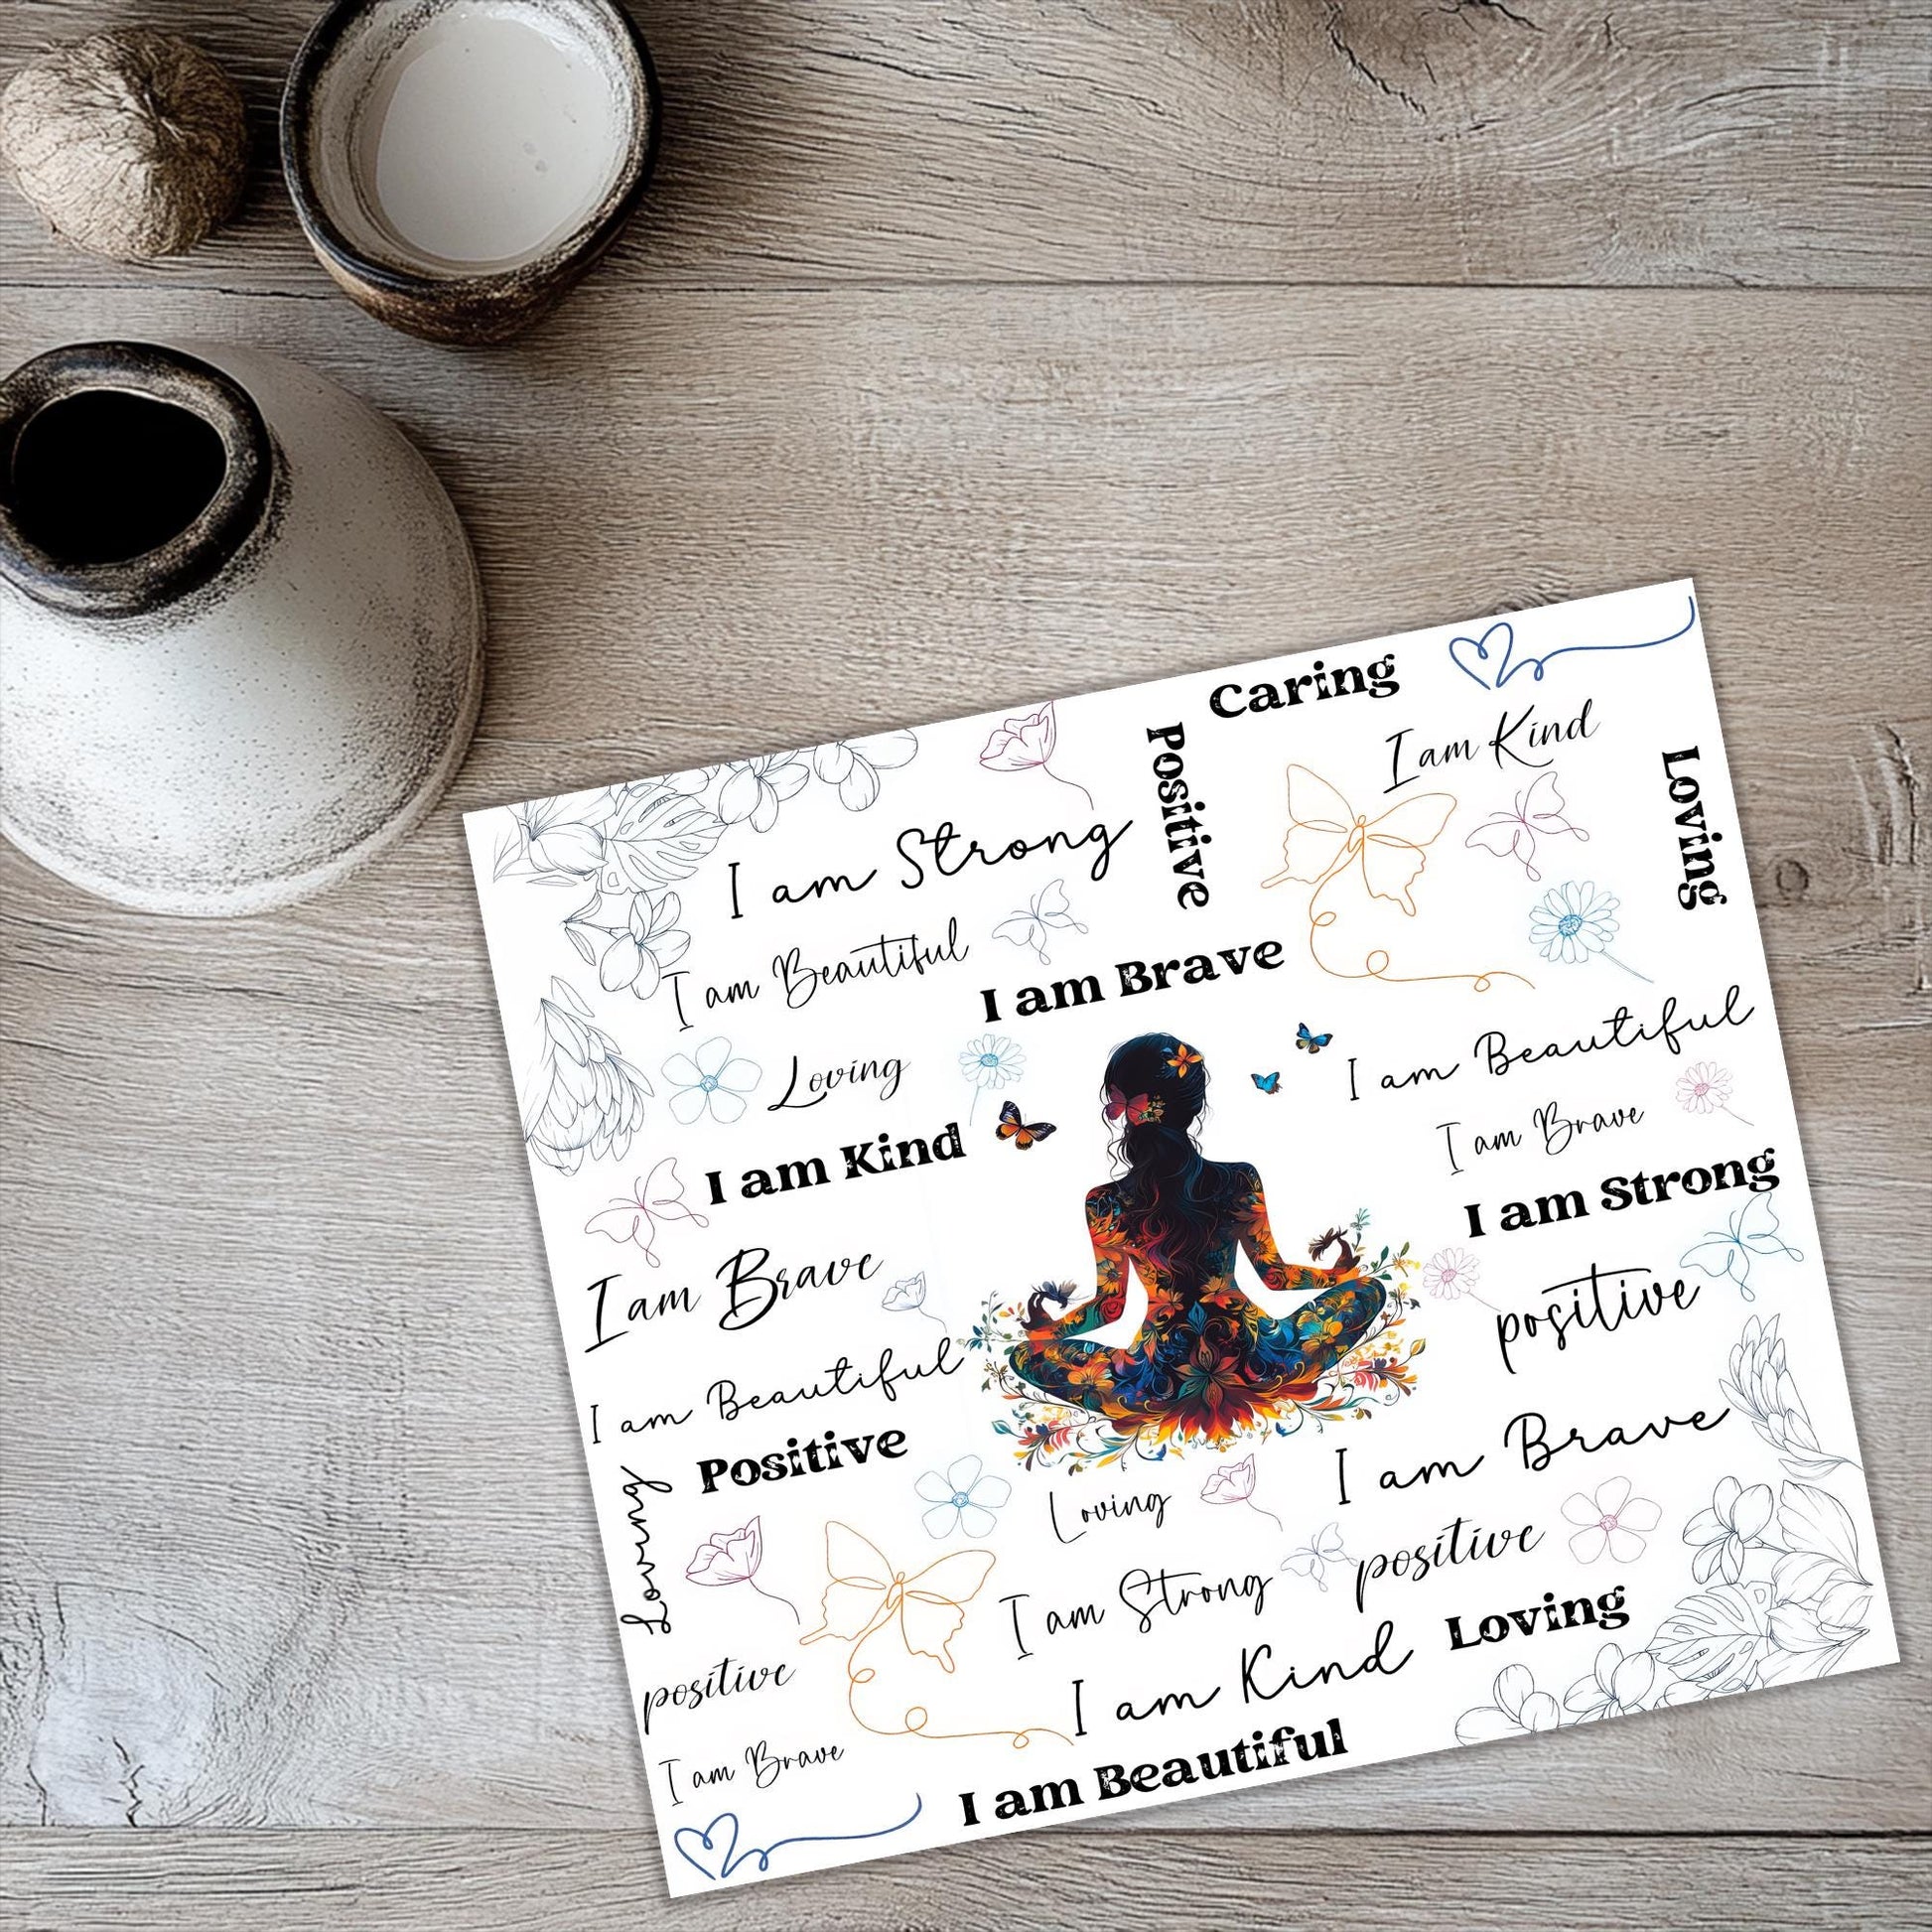 Caring
Positive
I am Kind
Loving
I am Strong
I am Beautiful
I am Brave
Loving
I am Beautiful
I am Brave
I am Kind
I am Strong
I am Brave
positive
I am Beautiful
Positive
I am Brave
Loving
Loving
positive
I am Strong
Loving
positive
I am Kind
I am Brave
I am Beautiful